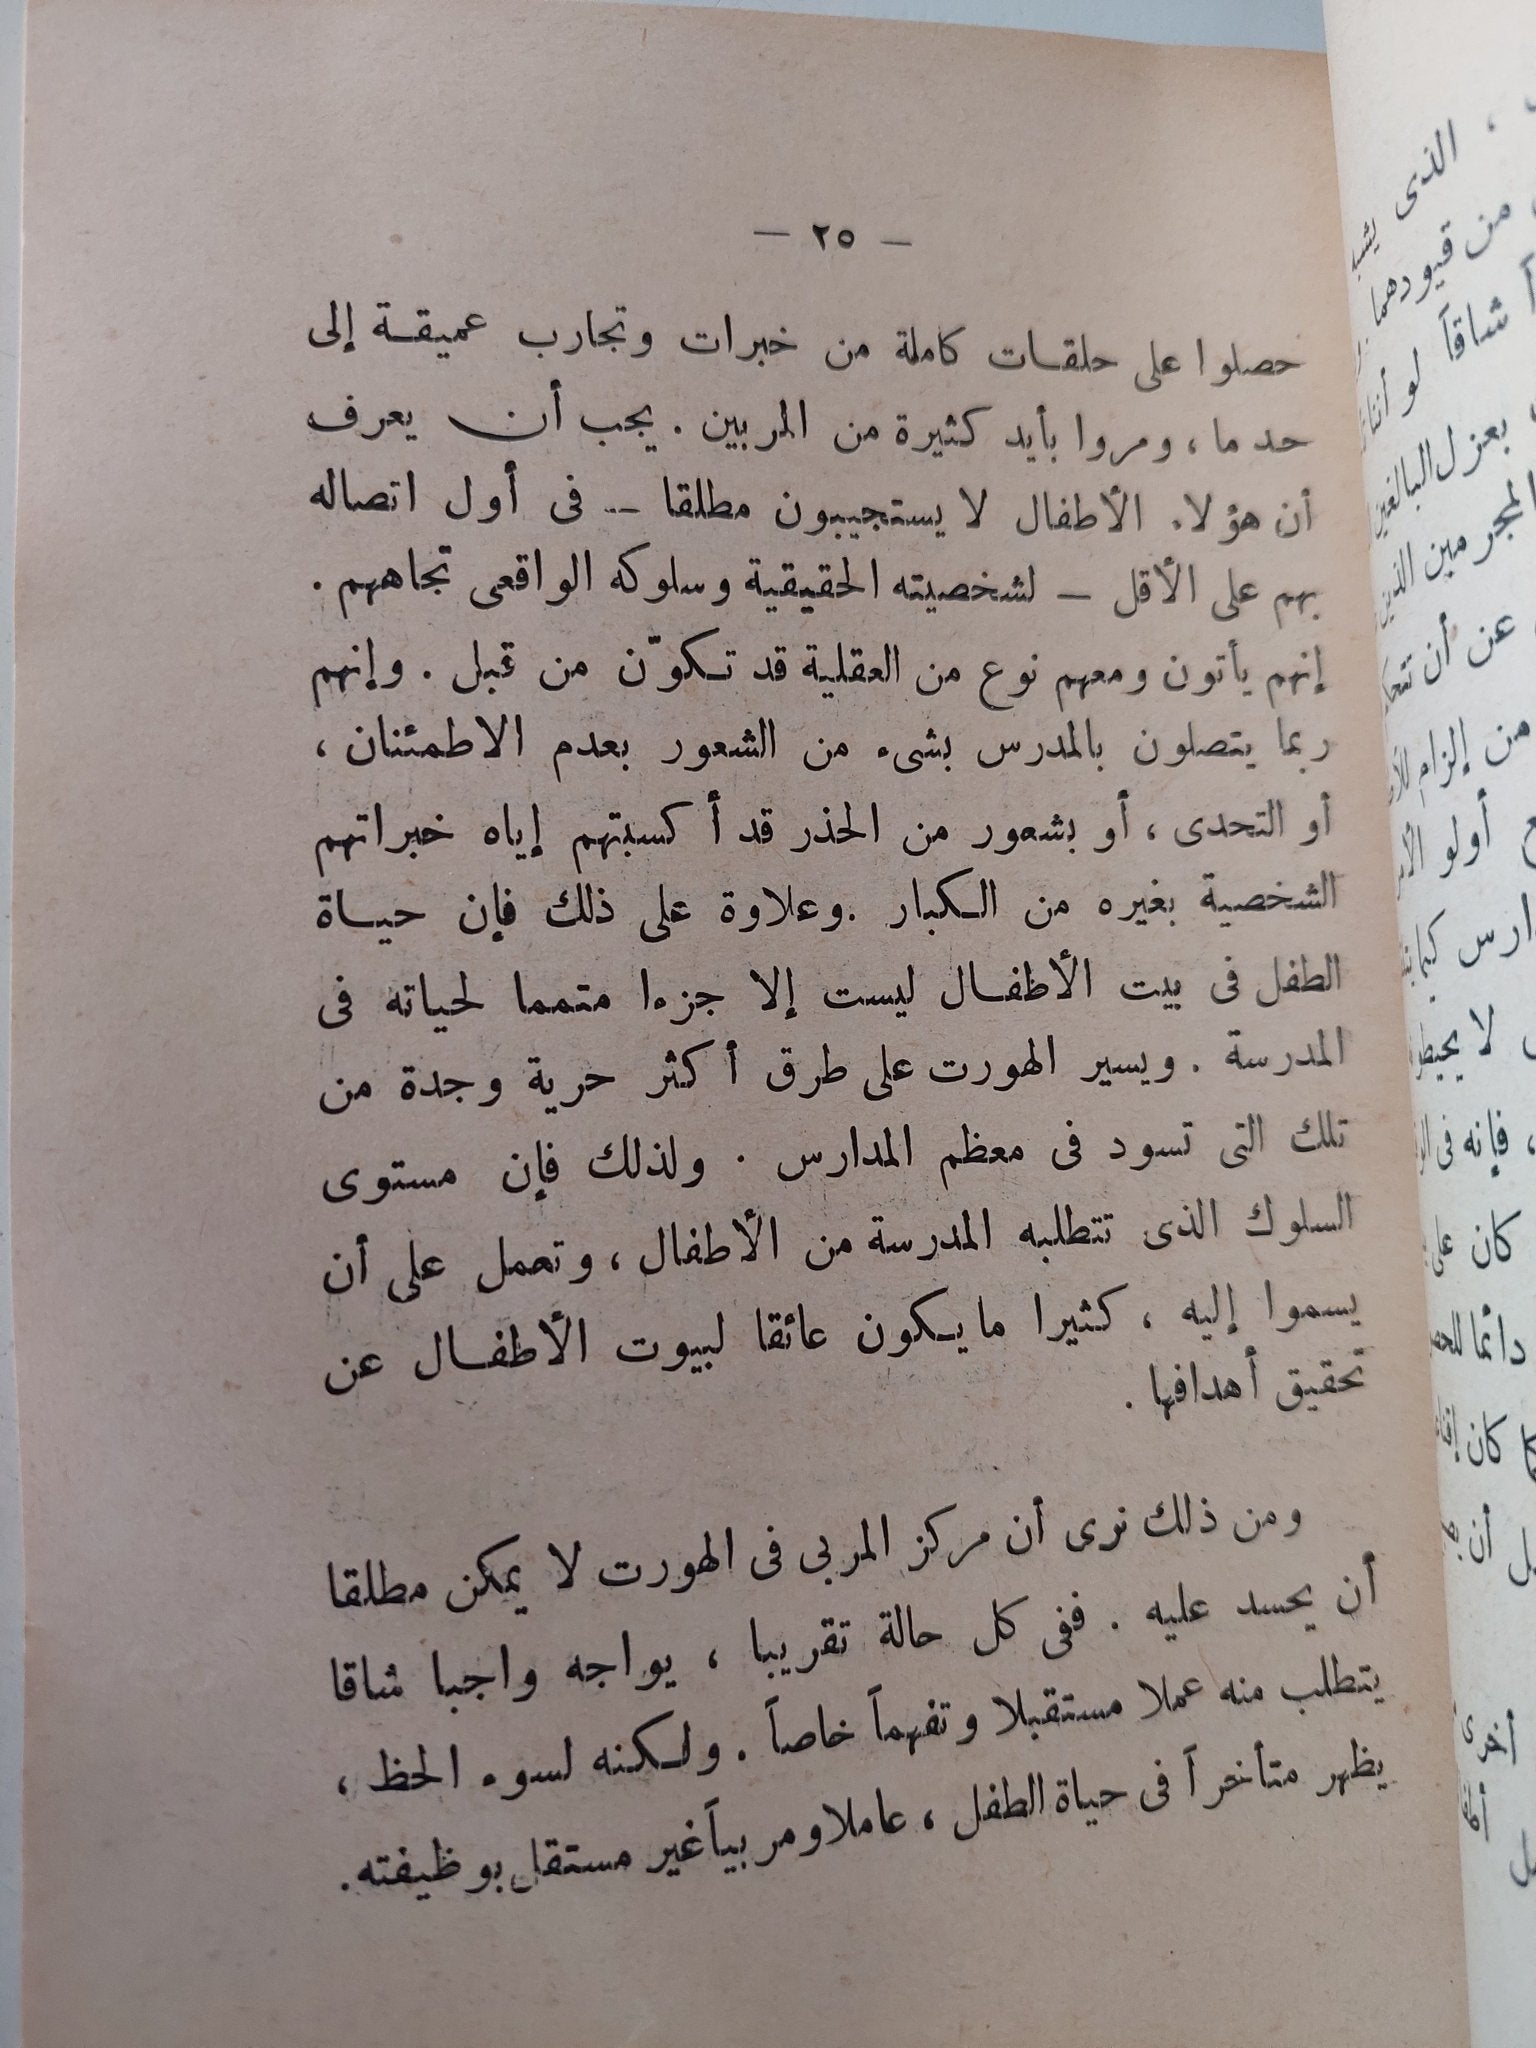 — ٢٥ —
حصلوا على حلقات كاملة من خبرات وتجارب عميقة إلى
حد ما، ومروا بأيد كثيرة من المربين . يجب أن يعرف
أن هؤلاء الأطفال لا يستجيبون مطلقا — فى أول اتصاله
بهم على الأقل — لشخصيته الحقيقية وسلوكه الواقعى تجاههم .
إنهم يأتون ومعهم نوع من العقلية قد تكوّن من قبل . وإنهم
ربما يتصلون بالمدرس بشىء من الشعور بعدم الاطمئنان ،
أو التحدى ، أو بشعور من الحذر قد أكسبتهم إياه خبراتهم
الشخصية بغيره من الكبار . وعلاوة على ذلك فإن حياة
الطفل فى بيت الأطفال ليست إلا جزءا متمما لحياته فى
المدرسة . ويسير الهورت على طرق أكثر حرية وجدة من
تلك التى تسود فى معظم المدارس . ولذلك فإن مستوى
السلوك الذى تتطلبه المدرسة من الأطفال ، وتعمل على أن
يسموا إليه ، كثيرا ما يكون عائقا لبيوت الأطفال عن
تحقيق أهدافها .
ومن ذلك نرى أن مركز المربى فى الهورت لا يمكن مطلقا
أن يحسد عليه . ففى كل حالة تقريبا ، يواجه واجبا شاقا
يتطلب منه عملا مستقبلا وتفهماً خاصاً . ولكنه لسوء الحظ ،
يظهر متأخراً فى حياة الطفل ، عاملا ومربياً غير مستقل بوظيفته.
، الذى يشبه
من قيودهما
شاقاً لو أننا
بعزل البالغين
المجرمين الذين
عن أن
من إلزام
أولو
لا
، فإنه فى
كان على
دائما
كان
أن
أخرى